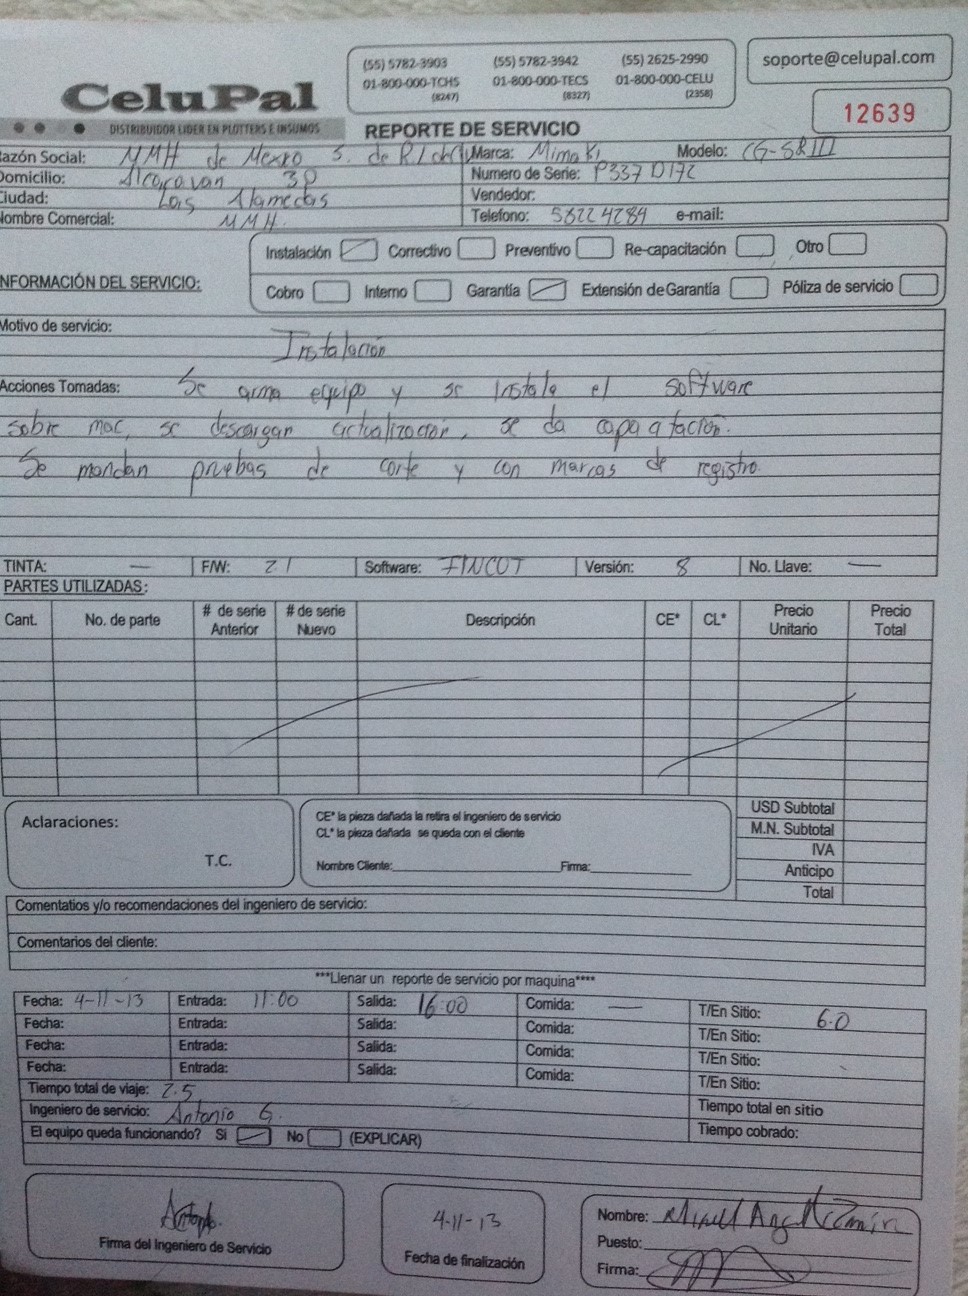 CeluPal
DISTRIBUIDOR LIDER EN PLOTTERS E INSUMOS
(55) 5782-3903 (55) 5782-3942 (55) 2625-2990
01-800-000-TCHS 01-800-000-TECS 01-800-000-CELU
(8247) (8327) (2358)
soporte@celupal.com
12639
REPORTE DE SERVICIO
azón Social: MMH de Mexico S. de R.L de Marca: Mimaki Modelo: CG-SRIII
Domicilio: 30 Numero de Serie: P337D172
Ciudad: Las Alamedas Vendedor:
Nombre Comercial: MMH. Telefono: 58224284 e-mail:
Instalación Correctivo Preventivo Re-capacitación Otro
NFORMACIÓN DEL SERVICIO:
Cobro Interno Garantía Extensión de Garantía Póliza de servicio
Motivo de servicio:
Instalación
Acciones Tomadas: Se arma equipo y se Instala el software
sobre mac, se descargan actualización, se da capacitación.
Se mandan pruebas de corte y con marcas de registro.
TINTA: — F/W: 2.1 Software: FINCUT Versión: 8 No. Llave: —
PARTES UTILIZADAS:
Cant. No. de parte # de serie Anterior # de serie Nuevo Descripción CE* CL* Precio Unitario Precio Total
Aclaraciones:
T.C.
CE* la pieza dañada la retira el ingeniero de servicio
CL* la pieza dañada se queda con el cliente
Nombre Cliente: Firma:
USD Subtotal
M.N. Subtotal
IVA
Anticipo
Total
Comentatios y/o recomendaciones del ingeniero de servicio:
Comentarios del cliente:
***Llenar un reporte de servicio por maquina****
Fecha: 4-11-13 Entrada: 11:00 Salida: 16:00 Comida: — T/En Sitio: 6.0
Fecha: Entrada: Salida: Comida: T/En Sitio:
Fecha: Entrada: Salida: Comida: T/En Sitio:
Fecha: Entrada: Salida: Comida: T/En Sitio:
Tiempo total de viaje: 2.5 Tiempo total en sitio
Ingeniero de servicio: Antonio G. Tiempo cobrado:
El equipo queda funcionando? Si No (EXPLICAR)
Firma del Ingeniero de Servicio
4-11-13
Fecha de finalización
Nombre: Miguel Angel
Puesto:
Firma: